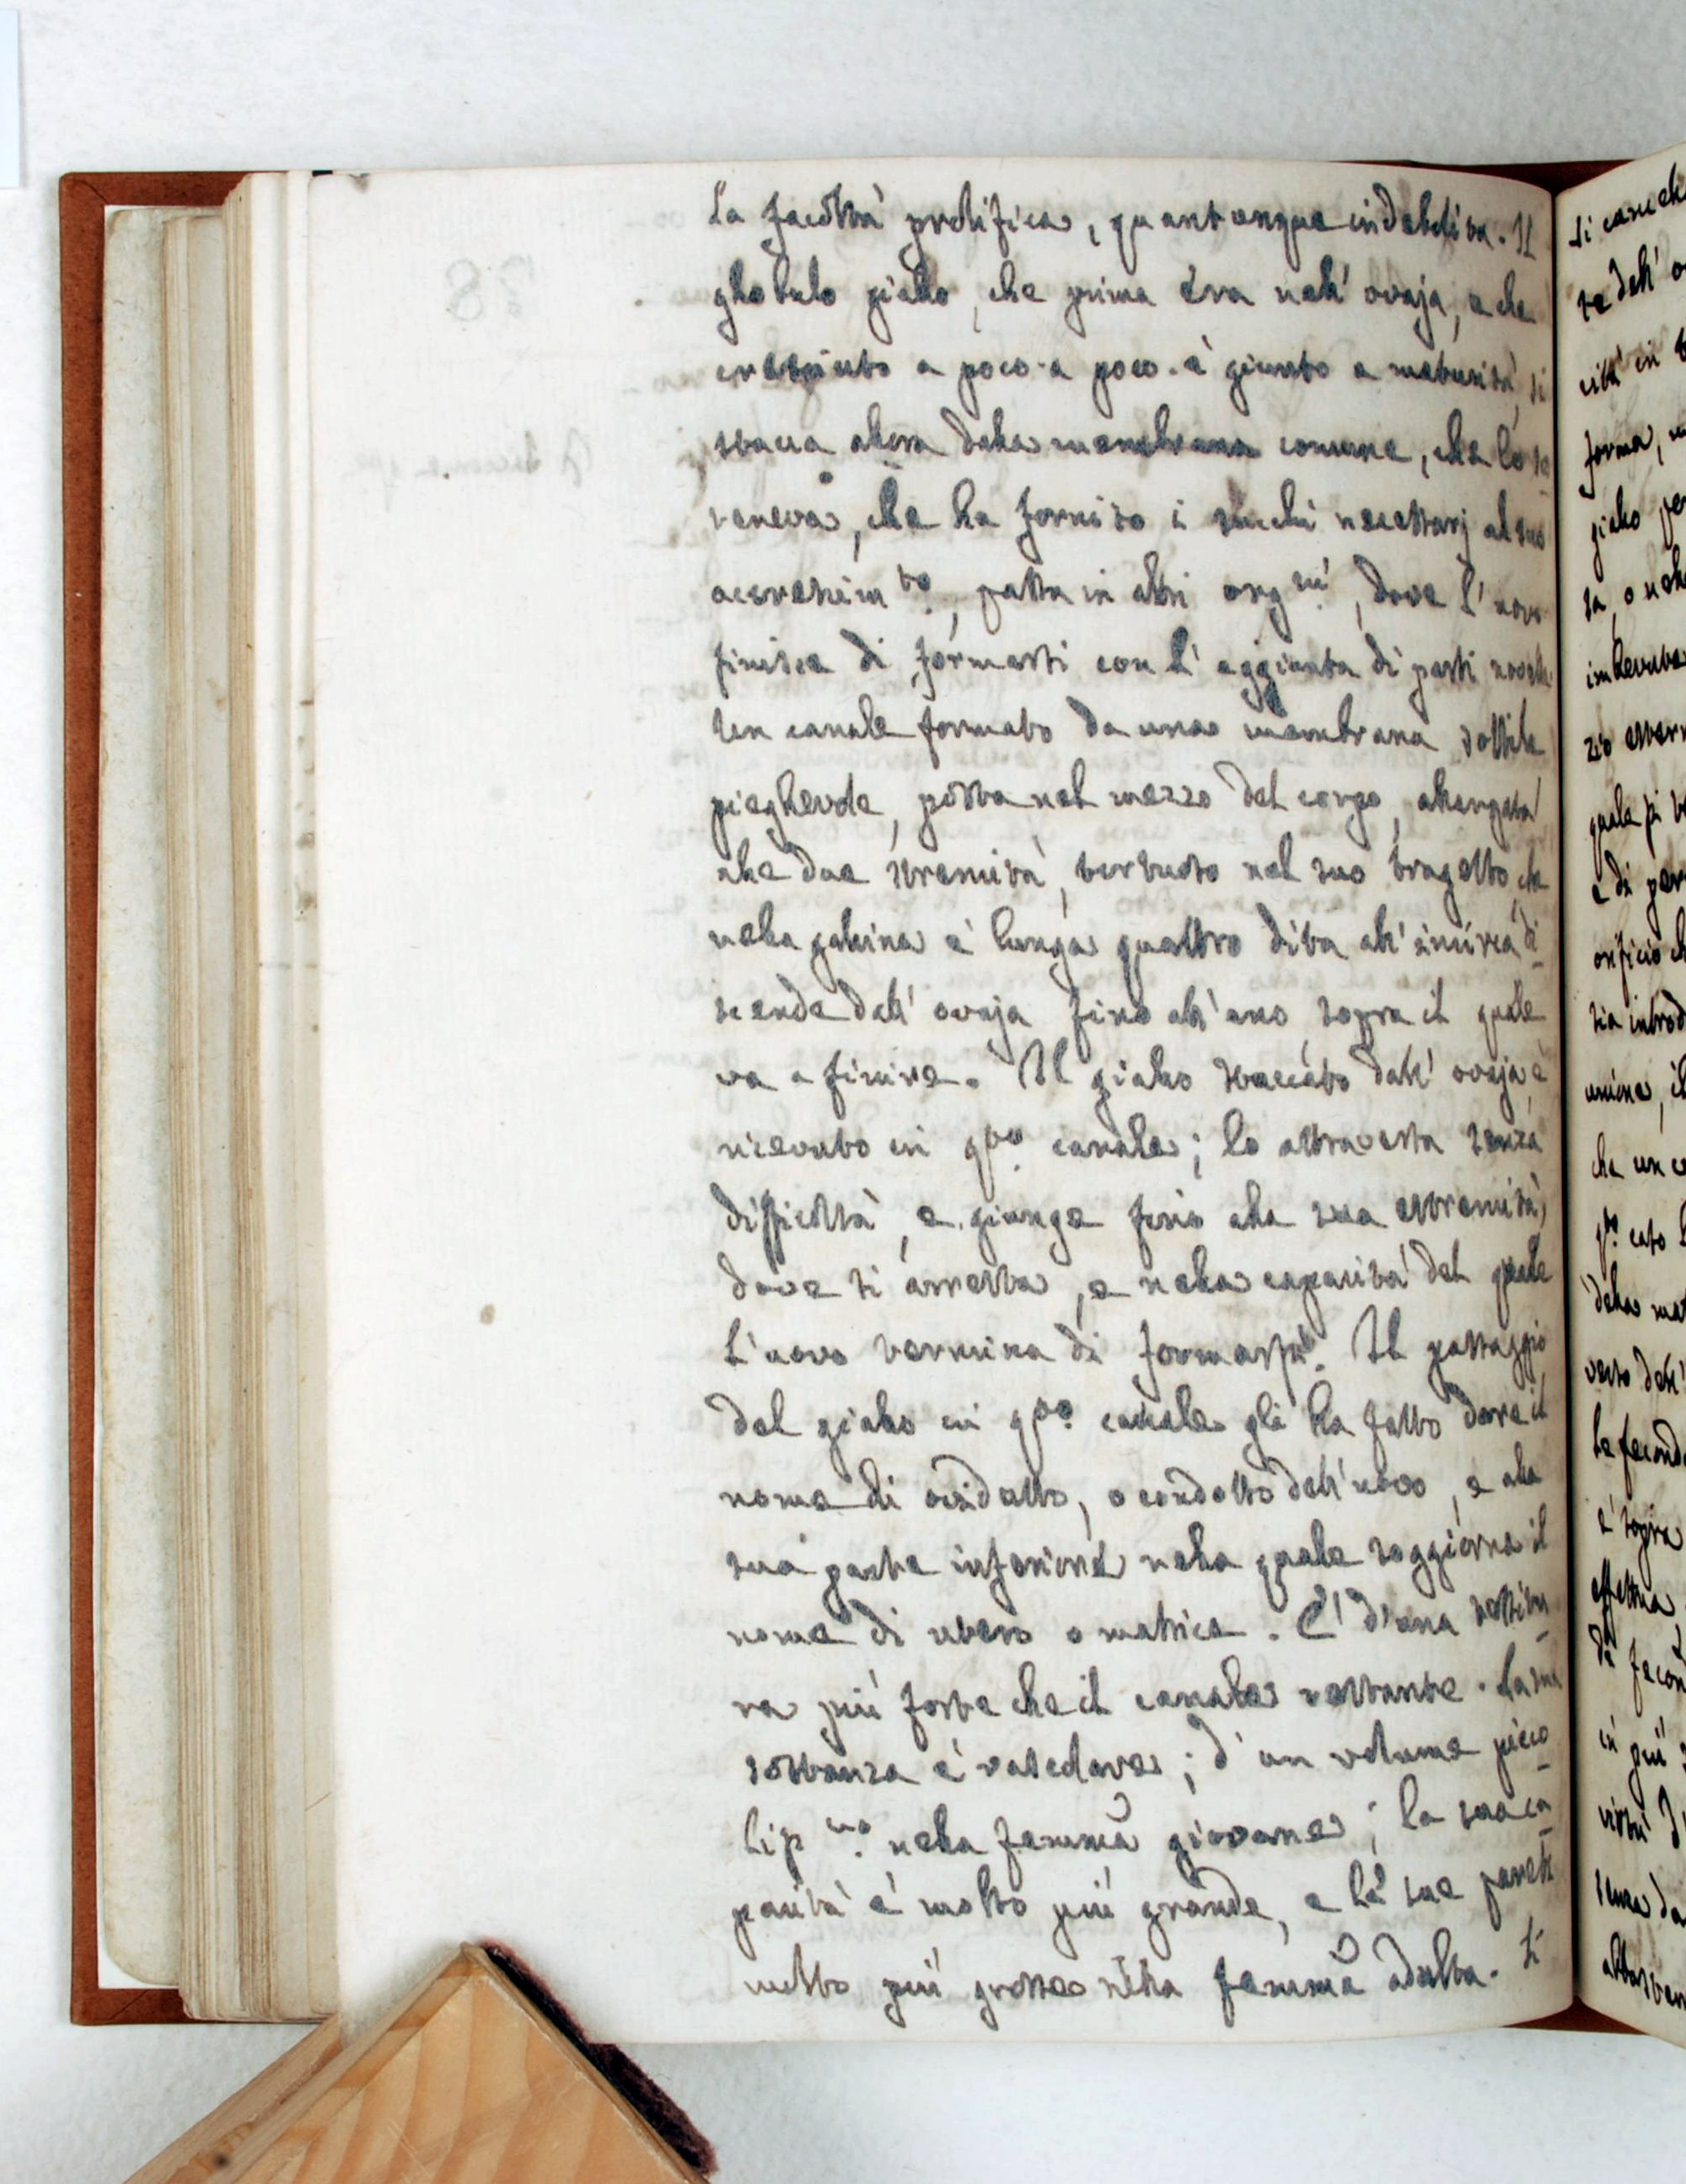 la facoltà prolifica, quantunque indebolita. Il
globulo giallo, che prima era nell' ovaja, e che
cresciuto a poco a poco è giunto a maturità, si
stacca allora dalla membrana comune, che lo ri-
teneva, che ha fornito i succhi necessarj al suo
accrescim.to, passa in altri org.ni, dove l'uovo
finisce di formarsi con l' aggiunta di parti novelle.
Un canale formato da una membrana sottile
pieghevole, posta nel mezzo del corpo, allargata
alle due stremità, tortuoso nel suo tragetto, che
nella gallina è lunga quattro dita all' sinistra di-
scende dall' ovaja fino all' ano, sopra il quale
va a finire. Il giallo staccato dall' ovaja, è
ricevuto in q.to canale; lo attraversa senza
difficoltà, e giunge fino alla sua estremità,
dove si arresta, e nella capacità del quale
l'uovo termina di formarsi. Il passaggio
del giallo in q.to canale gli ha fatto dare il
nome di ovidatto, o condotto dell' uovo, e alla
sua parte inferiore nella quale soggiorna il
nome di utero o matrice. E' d'una testitu-
ra più forte che il canale restante. La sua
sostanza è vascolare; d' un volume picco-
liss.mo nella femmina giovane; la sua ca-
pacità è molto più grande, e le sue pareti
molto più grosse nella femmina adulta. Si